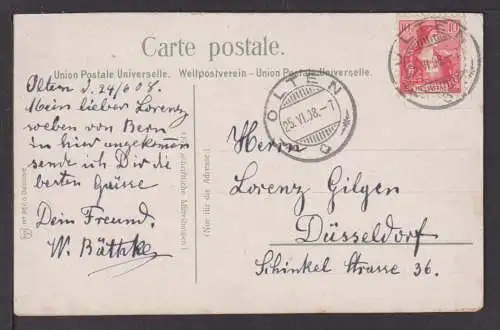 Carte postale.
Union Postale Universelle. Weltpostverein - Union Postale Universelle.
Olten d. 24/6 08.
Mein lieber Lorenz
soeben von Bern
in hier angekommen
sende ich Dir die
besten Grüsse
Dein Freund.
W. Bäthke
(Für schriftliche Mitteilungen)
(Nur für die Adresse)
OLTEN
25.VI.08.-7
10 10
HELVETIA
Herrn
Lorenz Gilgen
Düsseldorf
Schinkel Strasse 36.